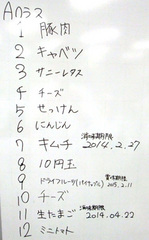 Aクラス
1 豚肉
2 キャベツ
3 サニーレタス
4 チーズ
5 せっけん
6 にんじん
7 キムチ 消味期限 2014.2.27
8 10円玉
9 ドライフルーツ(パイナップル) 賞味期限 2015.2.11
10 チーズ
11 生たまご 消味期限 2014.04.22
12 ミニトマト